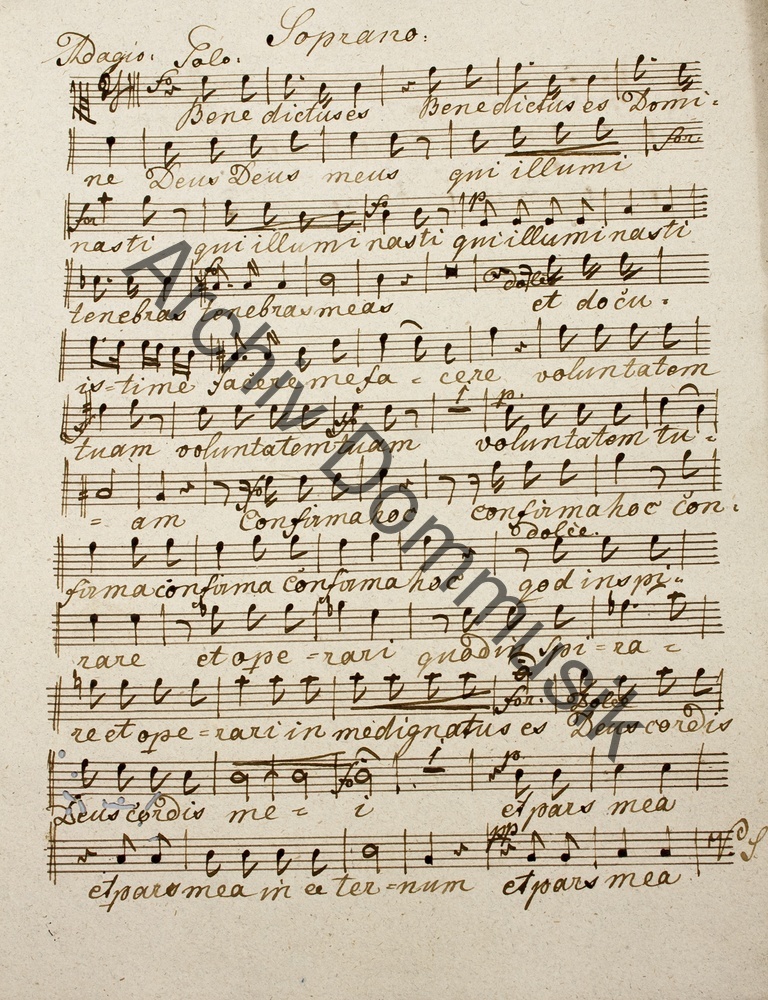 Soprano:
Adagio. Solo.
Benedictus es Benedictus es Domi-
ne Deus Deus meus qui illumi
for
for fo p
nasti qui illumi nasti qui illuminasti
dolce
tenebras tenebras meas et docu-
is=time facere me fa-cere voluntatem
1 p.
tuam voluntatem tuam voluntatem tu-
= am Confirma hoc confirma hoc con-
dolce.
firma confirma Confirma hoc qod inspi=
rare et ope=rari quod in spi=ra=
for. dolce
re et ope=rari in me dignatus es Deus cordis
fo 1 p.
Deus cordis me= i et pars mea
pp
V S
et pars mea in ae ter=num et pars mea
Archiv Dommusik